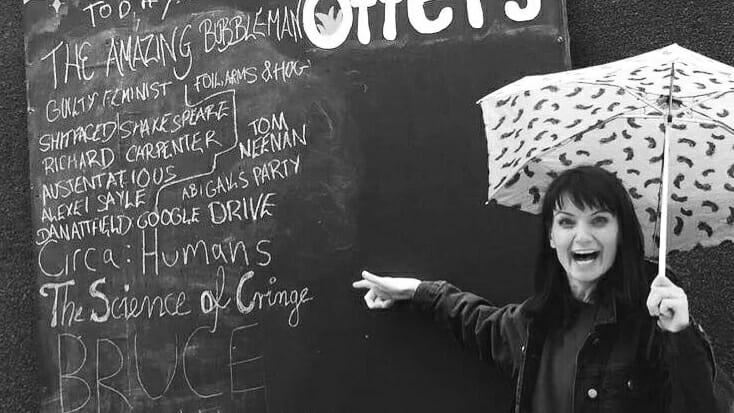 TODAY
Offers
THE AMAZING BUBBLEMAN
GUILTY FEMINIST
FOIL, ARMS & HOG
SHITFACED SHAKESPEARE
RICHARD CARPENTER
TOM
NEENAN
AUSTENTATIOUS
ALEXEI SAYLE
ABIGAILS PARTY
DANATTFIELD: GOOGLE DRIVE
Circa: Humans
The Science of Cringe
BRUCE